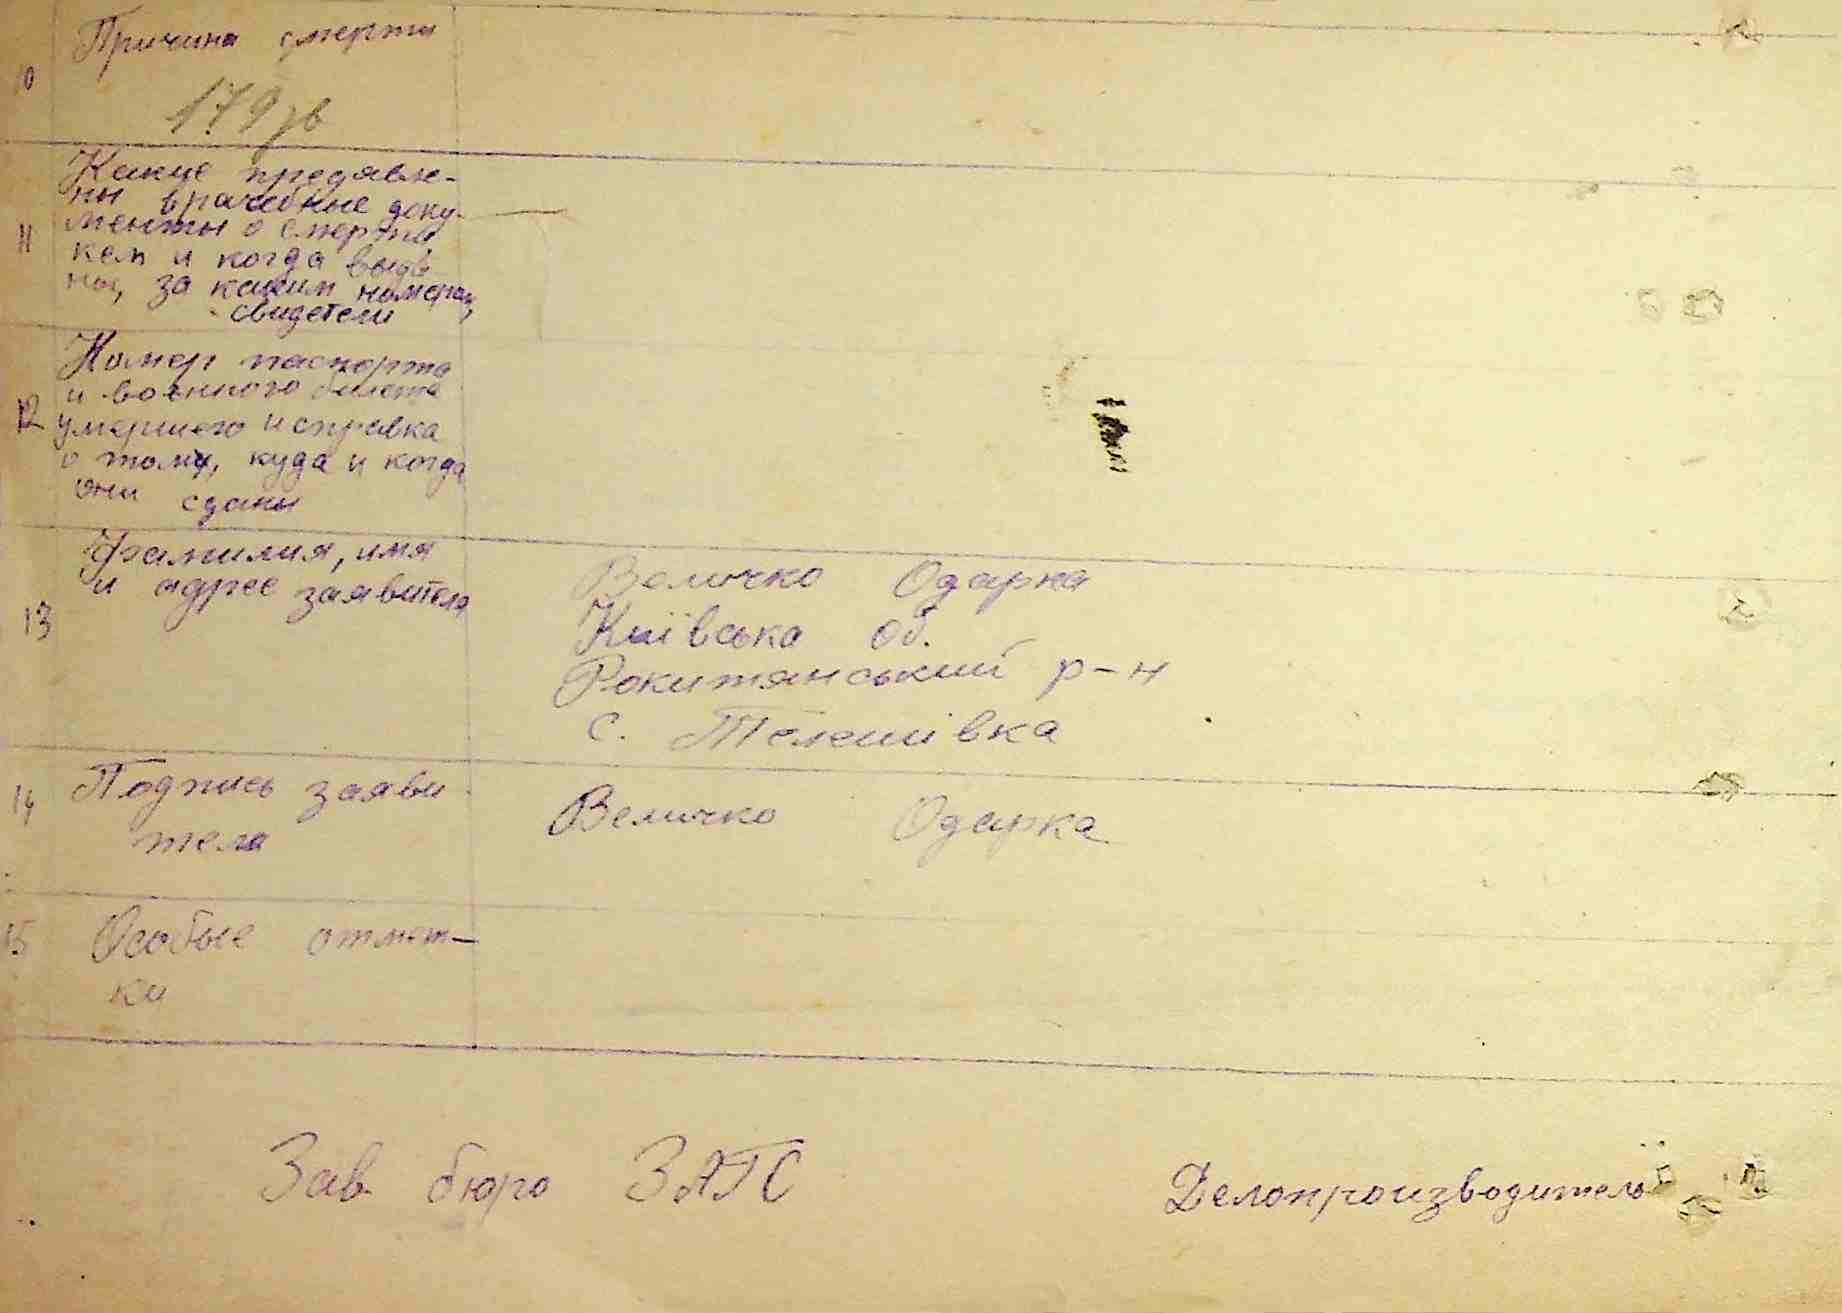 10 Причина смерти
179
11 Какие предявле-
ны врачебные доку-
менты о смерти
кем и когда выда
ны, за каким номером,
свидетели
12 Номер паспорта
и военного билета
умершего и справка
о тому, куда и когда
они сданы
13 Фамилия, имя
и адрес заявителя
Величко Одарка
Київська об.
Рокитянський р-н
с. Телешівка
14 Подпись заяви
теля
Величко Одарка
15 Особые отмет-
ки
Зав. бюро ЗАГС
Делопроизводитель